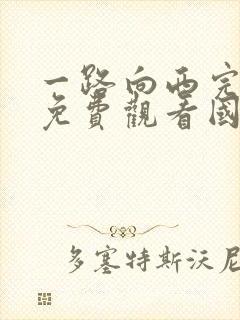 一路向西完
免費觀看國
多塞特斯沃尼